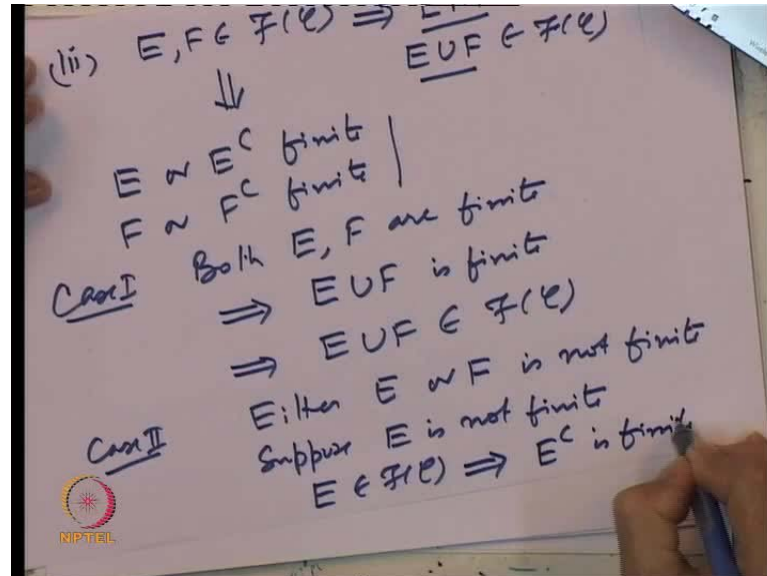 (iii) E, F ∈ F(C) ⇒
E ∪ F ∈ F(C)
⇓
E or E^C finite
F or F^C finite
Case I Both E, F are finite
⇒ E ∪ F is finite
⇒ E ∪ F ∈ F(C)
Case II Either E or F is not finite
Suppose E is not finite
E ∈ F(C) ⇒ E^C is finite
NPTEL